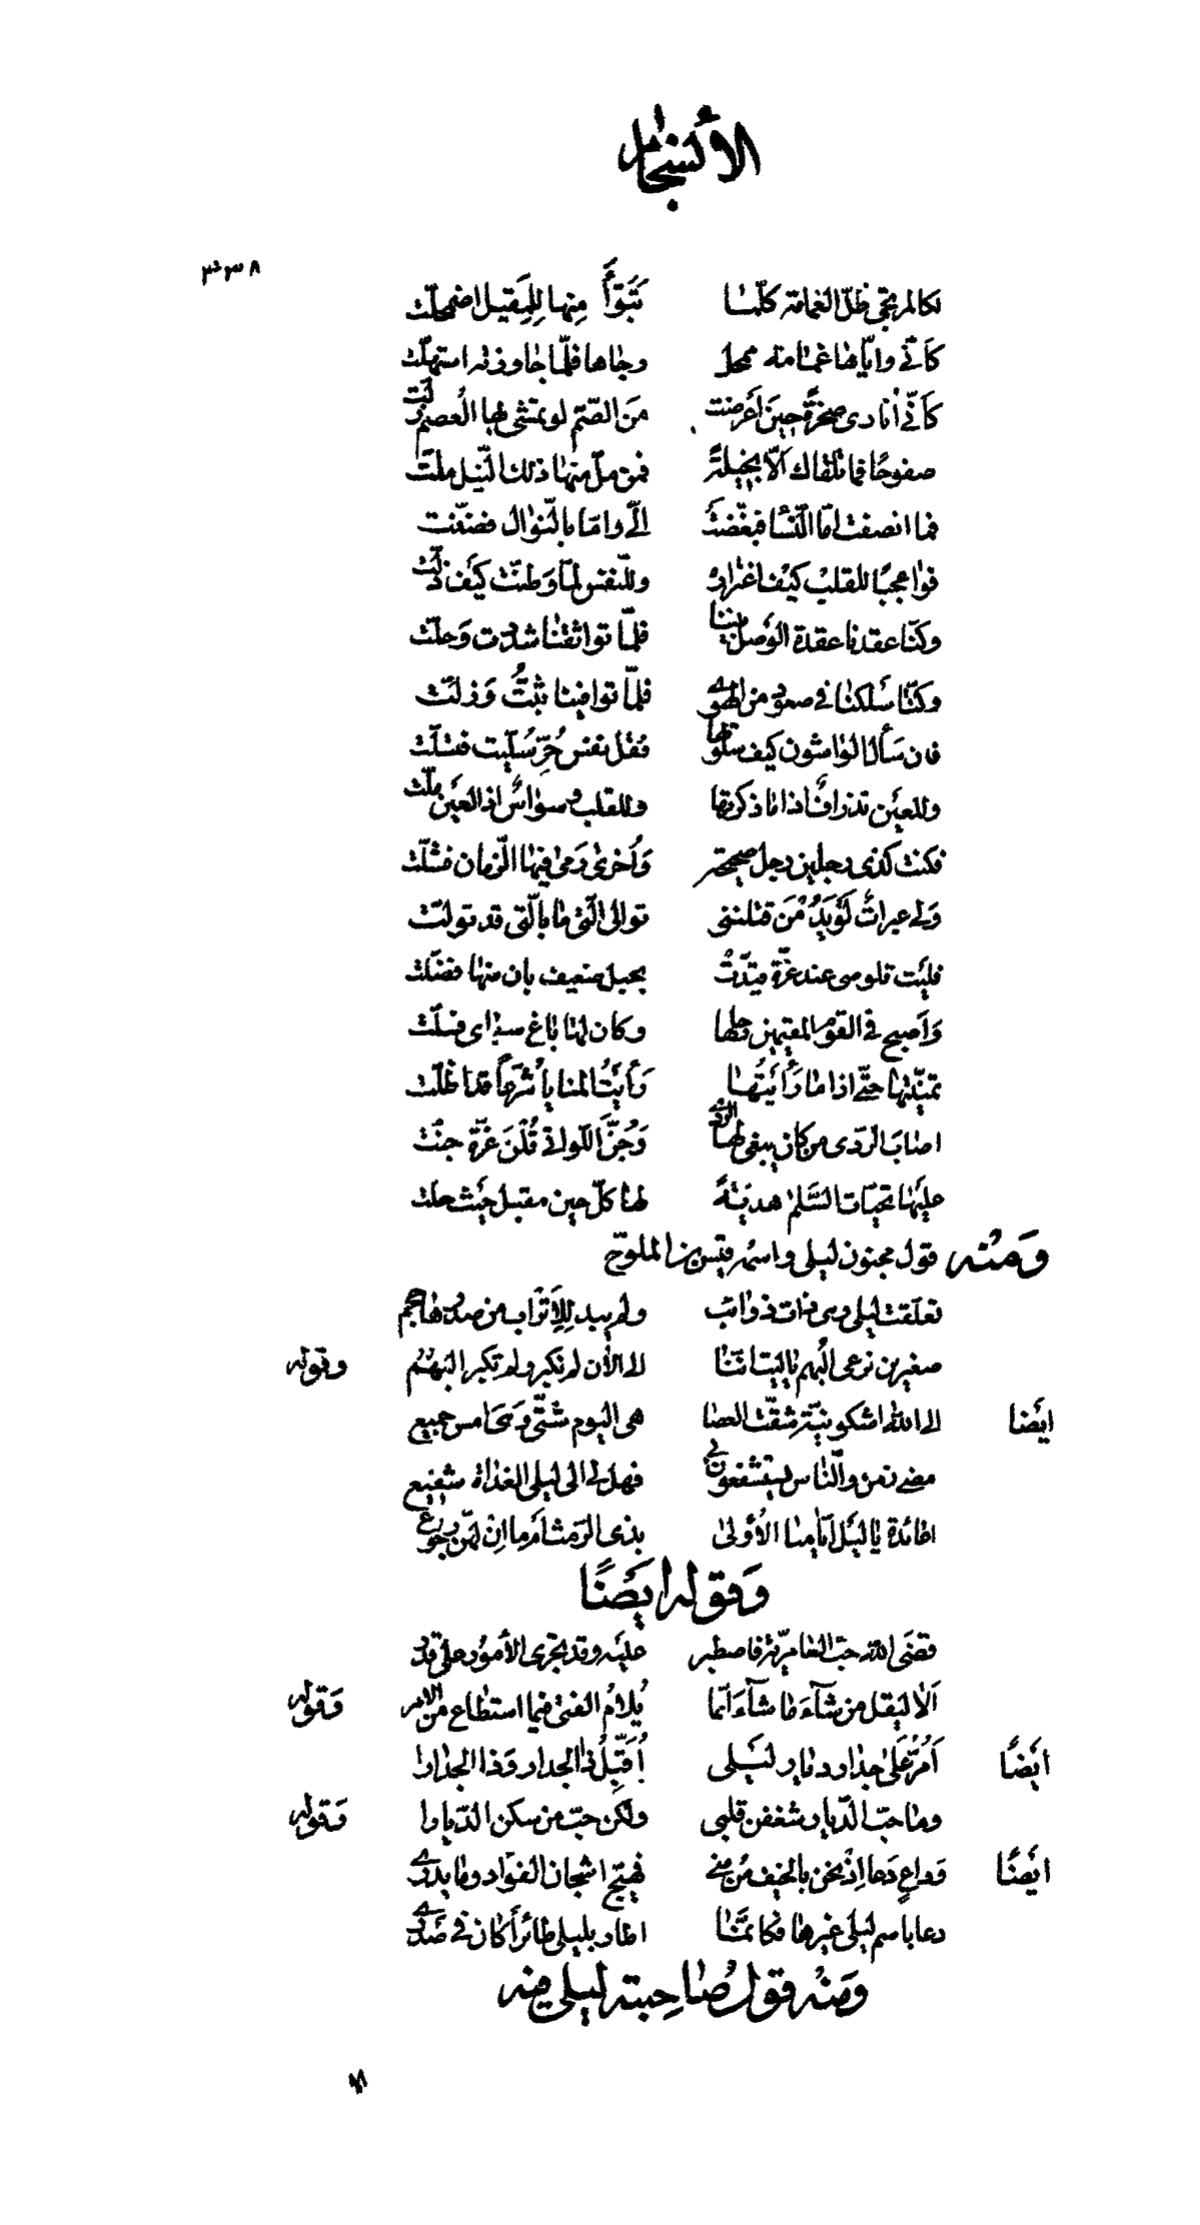 الأنسجام
٣٣٨
لكالمرتجى ظل الغمامة كلما تبوّأ منها للمقيل اضمحلت
كأنّي وايّاها غمامة ممحل رجاها فلمّا جاوزته استهلّت
كأنّي أنادى صخرةً حين أعرضت من الصّم لو تمشى بها العصم زلّت
صفوحًا فما تلقاك الّا بخيلةً فمن ملّ منها ذلك النّيل ملّت
فما انصفت امّا النّسا فبغّضت الىّ وامّا بالنّوال فضنّت
فواعجبًا للقلب كيف اغتراره وللنّفس لمّا وطنّت كيف ذلّت
وكنّا عقدنا عقدة الوصل بيننا فلمّا تواثقنا شددت وحلّت
وكنّا سلكنا في صعود من الهوى فلمّا توافينا ثبتُّ وزلّت
فان سأل الواشون كيف سلوتها فقل نفس حُرٍّ سُلّيت فتسلّت
وللعين تذرافٌ اذا ما ذكرتها وللقلب وسواسٌ اذا العين ملّت
فكنت كذى رجلين رجل صحيحة وأخرى رمى فيها الزمان فشلّت
ولي عبراتٌ لو يدُمن قتلننى توالى الّتى ما بالّتى قد تولّت
فليت قلوصى عند عزّة قيّدت بحبل ضعيف بان منها فضلّت
وأصبح في القوم المقيمين رحلها وكان لها باغ سواى فبلّت
تمنّيتها حتّى اذا ما رأيتها رأيتُ المنايا شُرّعاً قد اظلّت
اصاب الرّدى من كان يبغى لها الردى وجُنّ اللواتى قُلن عزّة جنّت
عليها تحيّات السّلام هديّةً لها كلّ حين مقبل حيث حلت
ومنه قول مجنون ليلى واسمه قيس بن الملوّح
تعلّقت ليلى وهى ذات ذوائب ولم يبد للأتراب من صدرها حجم
صغيرين نرعى البُهم ياليت انّنا الى الأن لم نكبر ولم تكبر البهم وقوله
ايضا الى الله اشكو نيّة شقّت العصا هى اليوم شتّى وهى امس جميع
مضى زمن والنّاس يستشفعون بي فهل لى الى ليلى الغداة شفيع
وقوله ايضًا
قضى الله حبّ العامريّة فاصطبر عليه وقد تجرى الأمور على قدر
ألا ليقل من شآء ما شآء انّما يُلامُ الفتى فيما استطاع من الأمر وقوله
ايضًا أمرّ على جدار ديار ليلى أقبّلُ ذا الجدار وذا الجدارا
وما حبّ الدّيار شغفن قلبى ولكن حبّ من سكن الدّيارا وقوله
ايضًا وداعٍ دعا إذ نحن بالخيف من منى فهيّج اشجان الفؤاد وما يدرى
دعا باسم ليلى غيرها فكانّما اطار بليلى طائراً كان في صدرى
ومنه قول صاحبته ليلى فيه